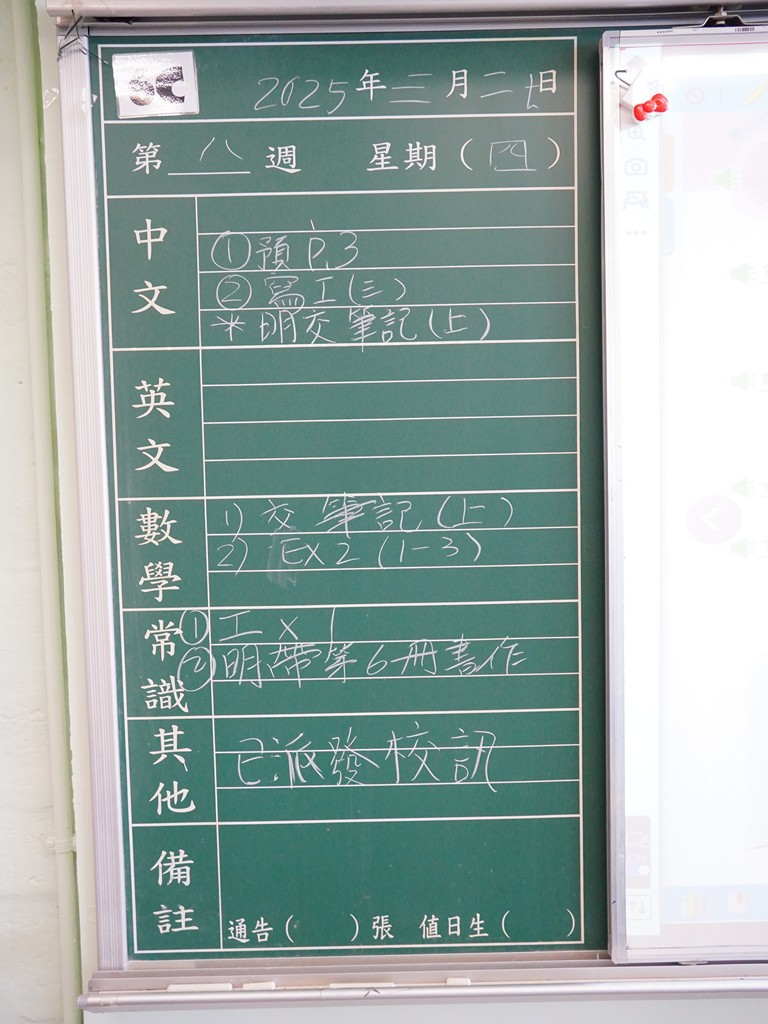 2025年三月二七日
第八週 星期（四）
中文
①預 P.3
②寫工(三)
*明交筆記(上)
英文
數學
1) 交筆記(上)
2) EX2 (1-3)
常識
①工 x 1
②明帶第6冊書作
其他
已派發校訊
備註
通告（ ）張 值日生（ ）